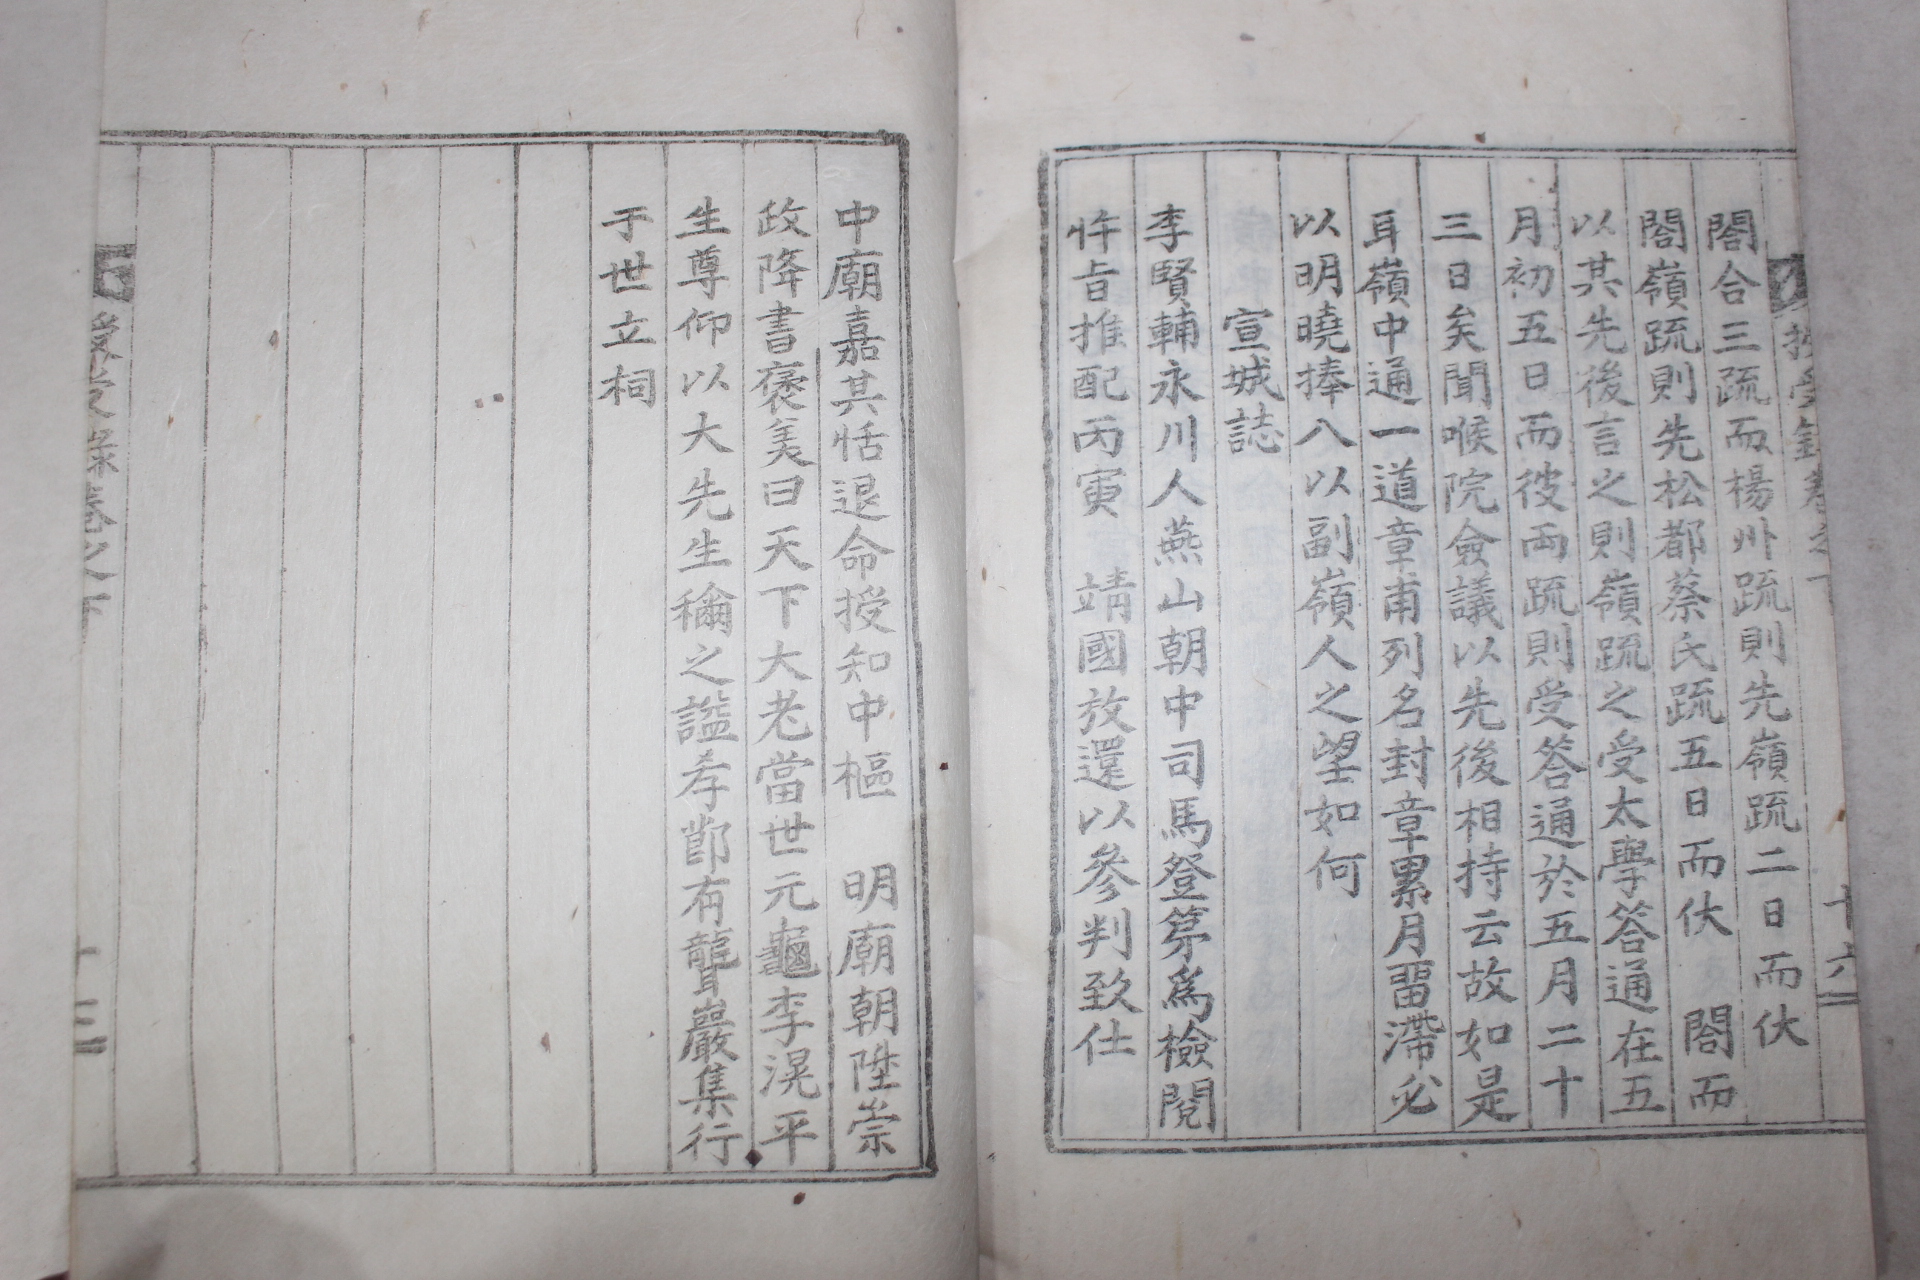 授受錄卷之下
十六
閤合三疏而楊州疏則先嶺疏二日而伏
閤嶺疏則先松都蔡氏疏五日而伏　閤而
以其先後言之則嶺疏之受太學答通在五
月初五日而彼両疏則受答通於五月二十
三日矣聞喉院僉議以先後相持云故如是
耳嶺中通一道章甫列名封章累月留滯必
以明曉捧八以副嶺人之望如何
宣城誌
李賢輔永川人燕山朝中司馬登第爲檢閱
忤旨推配丙寅　靖國放還以參判致仕
中廟嘉其恬退命授知中樞　明廟朝陞崇
政降書褒美曰天下大老當世元龜李滉平
生尊仰以大先生稱之謚孝節有聾巖集行
于世立祠
授受錄卷之下
十三